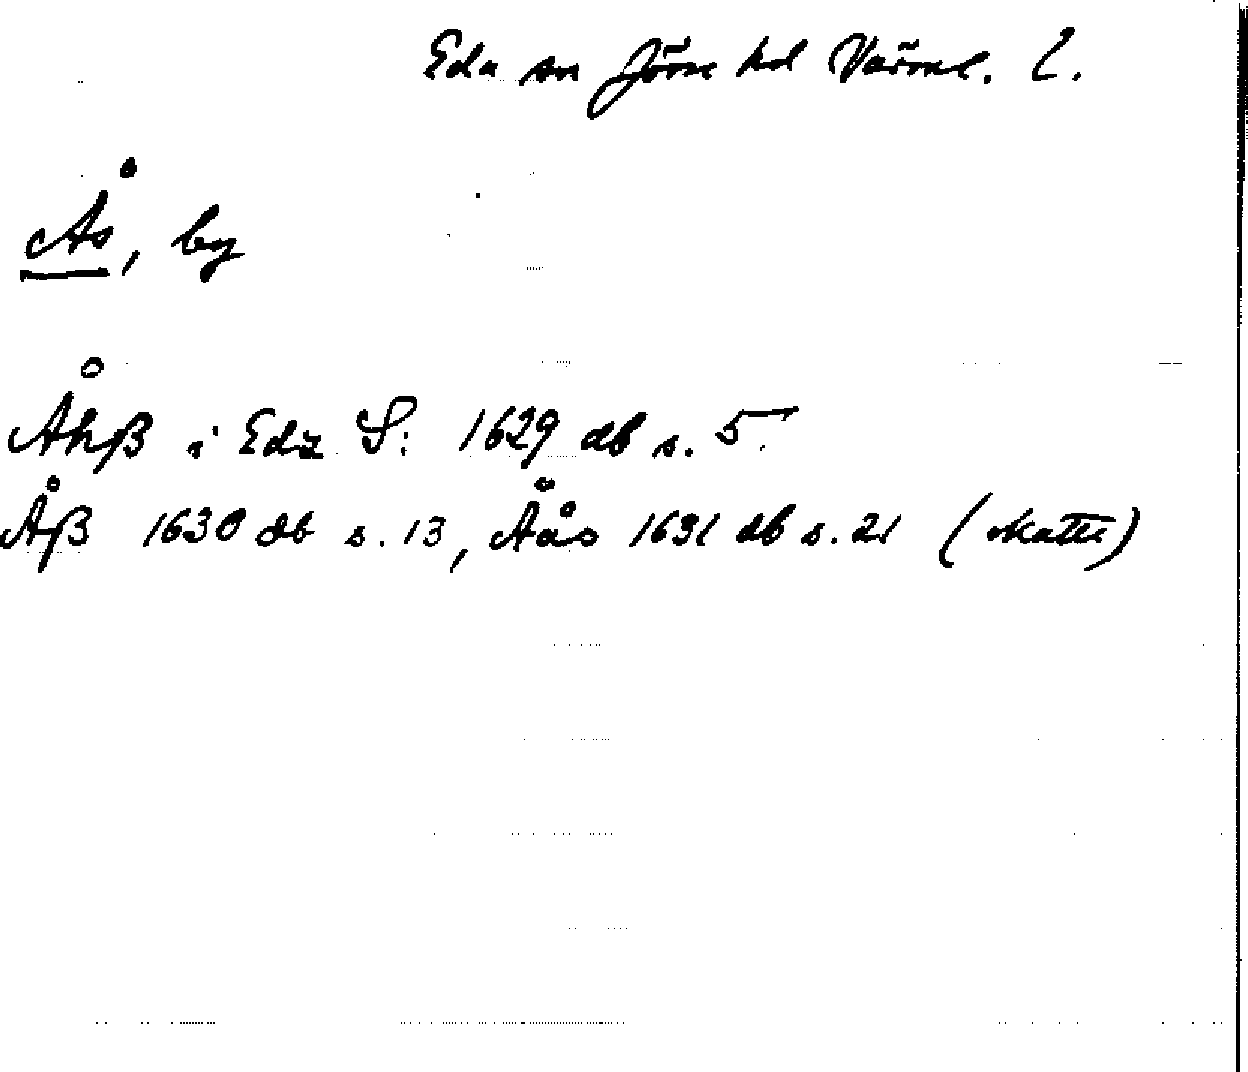 Eda sn Jösse hd Värml. l.
Ås, by
Åhß i Eda S: 1629 db s. 5.
Åß 1630 db s. 13, Åås 1631 db s. 21 (skatte)